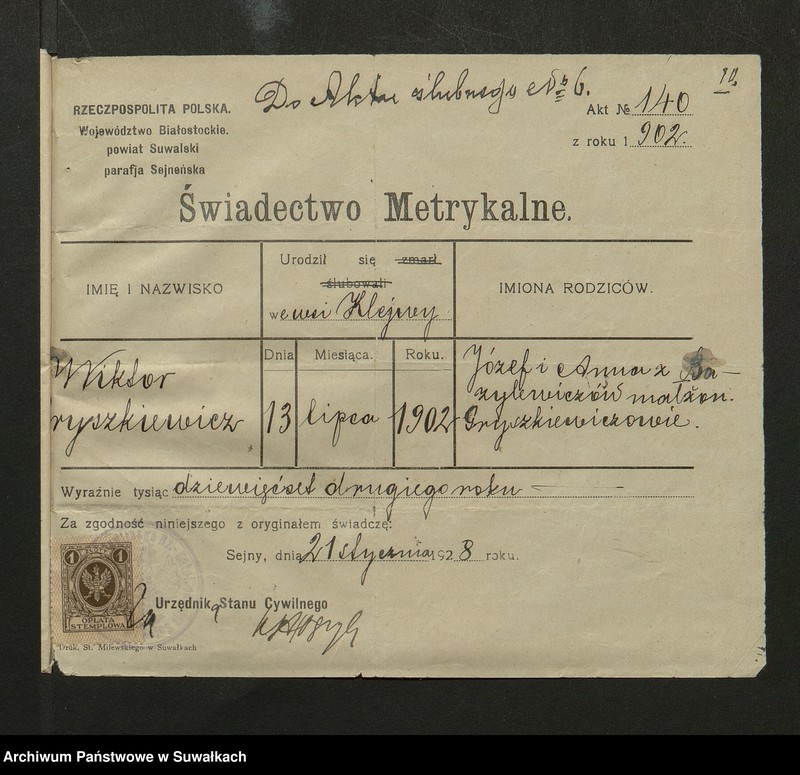 Do Aktu ślubnego № 6.
10.
RZECZPOSPOLITA POLSKA.
Województwo Białostockie.
powiat Suwalski
parafja Sejneńska
Akt № 140
z roku 1902.
Świadectwo Metrykalne.
IMIĘ I NAZWISKO
Urodził się zmarł
ślubowali
we wsi Klejwy
IMIONA RODZICÓW.
Dnia
Miesiąca.
Roku.
Wiktor
ryszkiewicz
13
lipca
1902
Józef i Anna z Ba-
zylewiczów małżon.
Gryszkiewiczowie.
Wyraźnie tysiąc dziewięćset drugiego roku
Za zgodność niniejszego z oryginałem świadczę:
Sejny, dnia 21 stycznia 1928 roku.
Za Urzędnika Stanu Cywilnego
1 ZŁOTY 1
OPŁATA
STEMPLOWA
Druk. St. Milewskiego w Suwałkach
Archiwum Państwowe w Suwałkach